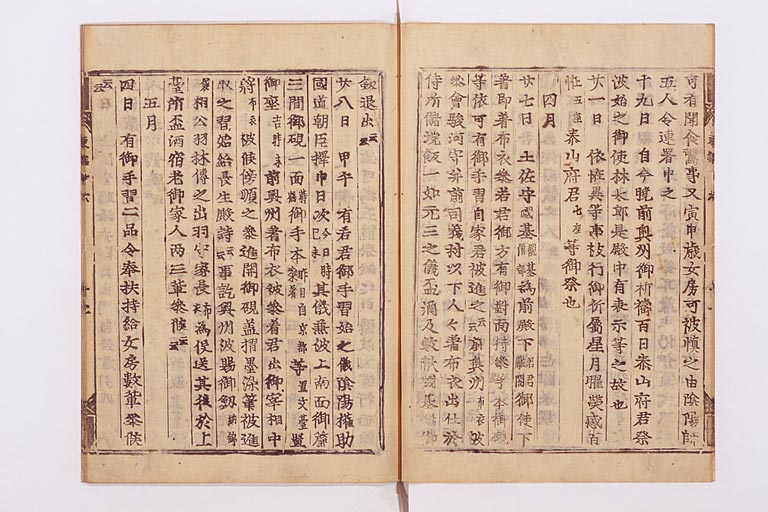 可有聞食驚事又寅申歳女房可被愼之由陰陽師
五人令連署申之
十九日自今曉前奥州御祈禱百日泰山府君祭
被始之御使林太郎是殿中有表示等之故也
廿一日 依怪異等事被行御祈屬星月曜熒惑百
恠五座泰山府君七座等御祭也
四月
廿七日 土佐守國基爲前殿下若君御使下
著即著布衣參若君御方有御對面持參手本御硯
等依可有御手習自家君被進之云云前奥州布衣被
參會駿河守并前司義村以下人々著布衣出仕於
侍所儲垸飯一如元三之儀盃酒及數獻國基
劔退出云云
廿八日 甲午 有若君御手習始之儀陰陽權助
國道朝臣擇申日次今日時其儀兼被上南面御簾
三間御硯一面御手本昨日自京都等置文臺置
御座時前奥州著布衣被參若君出御宰相中
將布衣被候傍頻之參進開御硯蓋摺墨染筆被進
取之習始給長生殿詩云云事訖奥州被賜御劔納錦
袋相公羽林傳之出羽守家長布衣爲役送其後於上
臺所盃酒宿老御家人両三輩參候云云
五月
四日 有御手習二品令奉扶持給女房數輩參候
云云